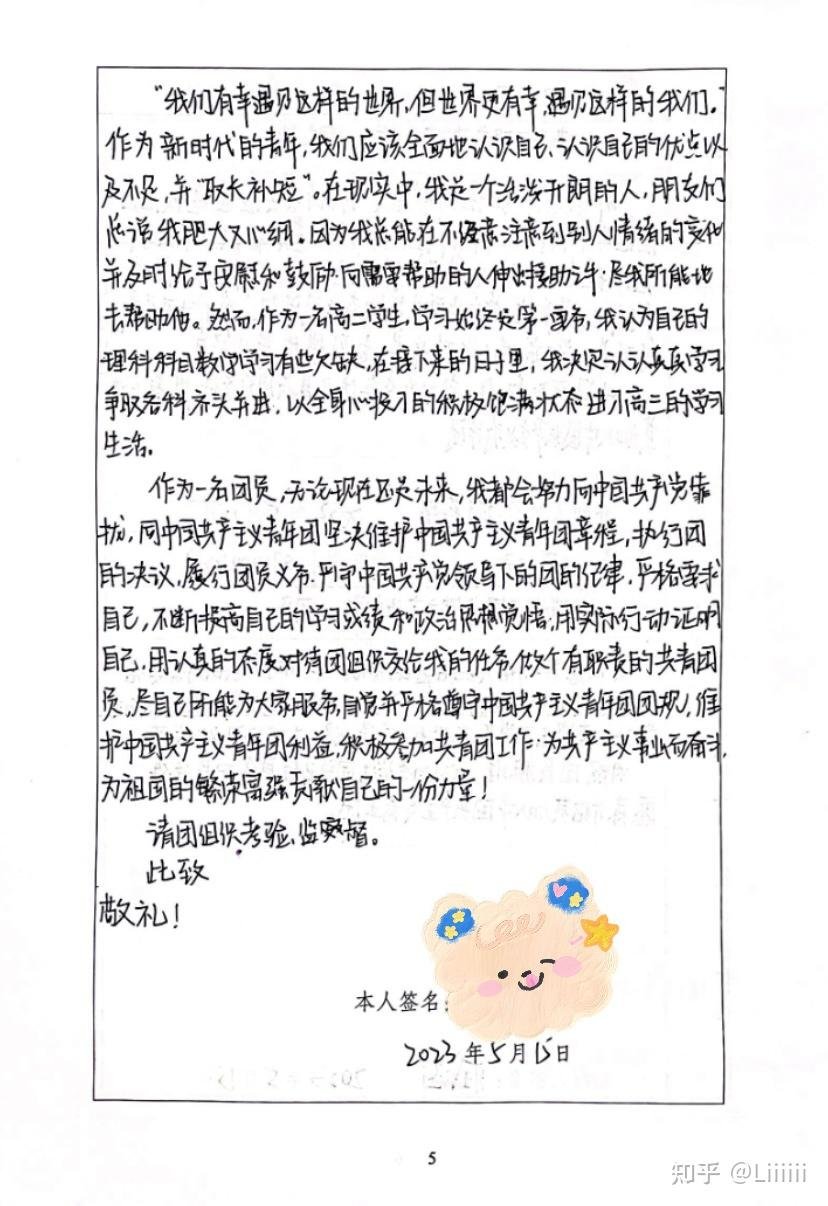 “我们有幸遇见这样的世界，但世界更有幸，遇见这样的我们。”
作为新时代的青年，我们应该全面地认识自己、认识自己的优点以
及不足，并“取长补短”。在现实中，我是一个活泼开朗的人，朋友们
总说我胆大又心细。因为我总能在不经意注意到别人情绪的变化
并及时给予安慰和鼓励·向需要帮助的人伸出援助之手·尽我所能地
去帮助他。然而，作为一名高二学生，学习始终是第一要务，我认为自己的
理科科目数学学习有些欠缺，在接下来的日子里，我决定认认真真学习
争取各科齐头并进，以全身心投入的积极饱满状态进入高三的学习
生活。
作为一名团员，无论现在还是未来，我都会努力向中国共产党靠
拢，向中国共产主义青年团坚决维护中国共产主义青年团章程，执行团
的决议，履行团员义务·严守中国共产党领导下的团的纪律，严格要求
自己，不断提高自己的学习成绩和政治思想觉悟，用实际行动证明
自己，用认真的态度对待团组织交给我的任务，做个有职责的共青团
员，尽自己所能为大家服务，自觉并严格遵守中国共产主义青年团团规，维
护中国共产主义青年团利益，积极参加共青团工作·为共产主义事业而奋斗，
为祖国的繁荣富强贡献自己的一份力量！
请团组织考验、监督。
此致
敬礼！
本人签名：
2023年5月15日
5
知乎 @Liiiiii